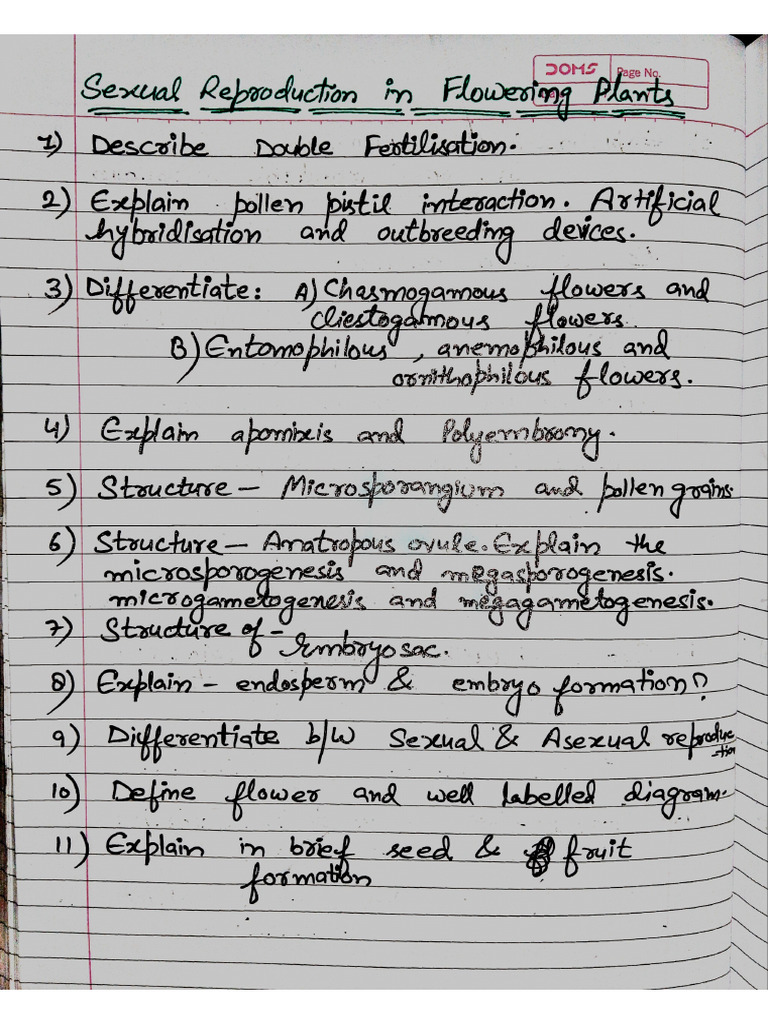 DOMS Page No.
Sexual Reproduction in Flowering Plants
1) Describe Double Fertilisation.
2) Explain pollen pistil interaction. Artificial
hybridisation and outbreeding devices.
3) Differentiate: A) Chasmogamous flowers and
cliestogamous flowers.
B) Entomophilous, anemophilous and
ornithophilous flowers.
4) Explain apomixis and Polyembromy.
5) Structure - Microsporangium and pollen grains.
6) Structure - Anatropous ovule. Explain the
microsporogenesis and megasporogenesis.
microgametogenesis and megagametogenesis.
7) Structure of - Embryo sac.
8) Explain - endosperm & embryo formation?
9) Differentiate b/w Sexual & Asexual reproduc
-tion
10) Define flower and well labelled diagram.
11) Explain in brief seed & fruit
formation